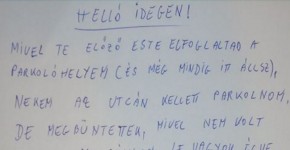 HELLÓ IDEGEN!
MIVEL TE ELŐZŐ ESTE ELFOGLALTAD A
PARKOLÓHELYEM (ÉS MÉG MINDIG ITT ÁLLSZ),
NEKEM AZ UTCÁN KELLETT PARKOLNOM,
DE MEGBÜNTETTEK, MIVEL NEM VOLT